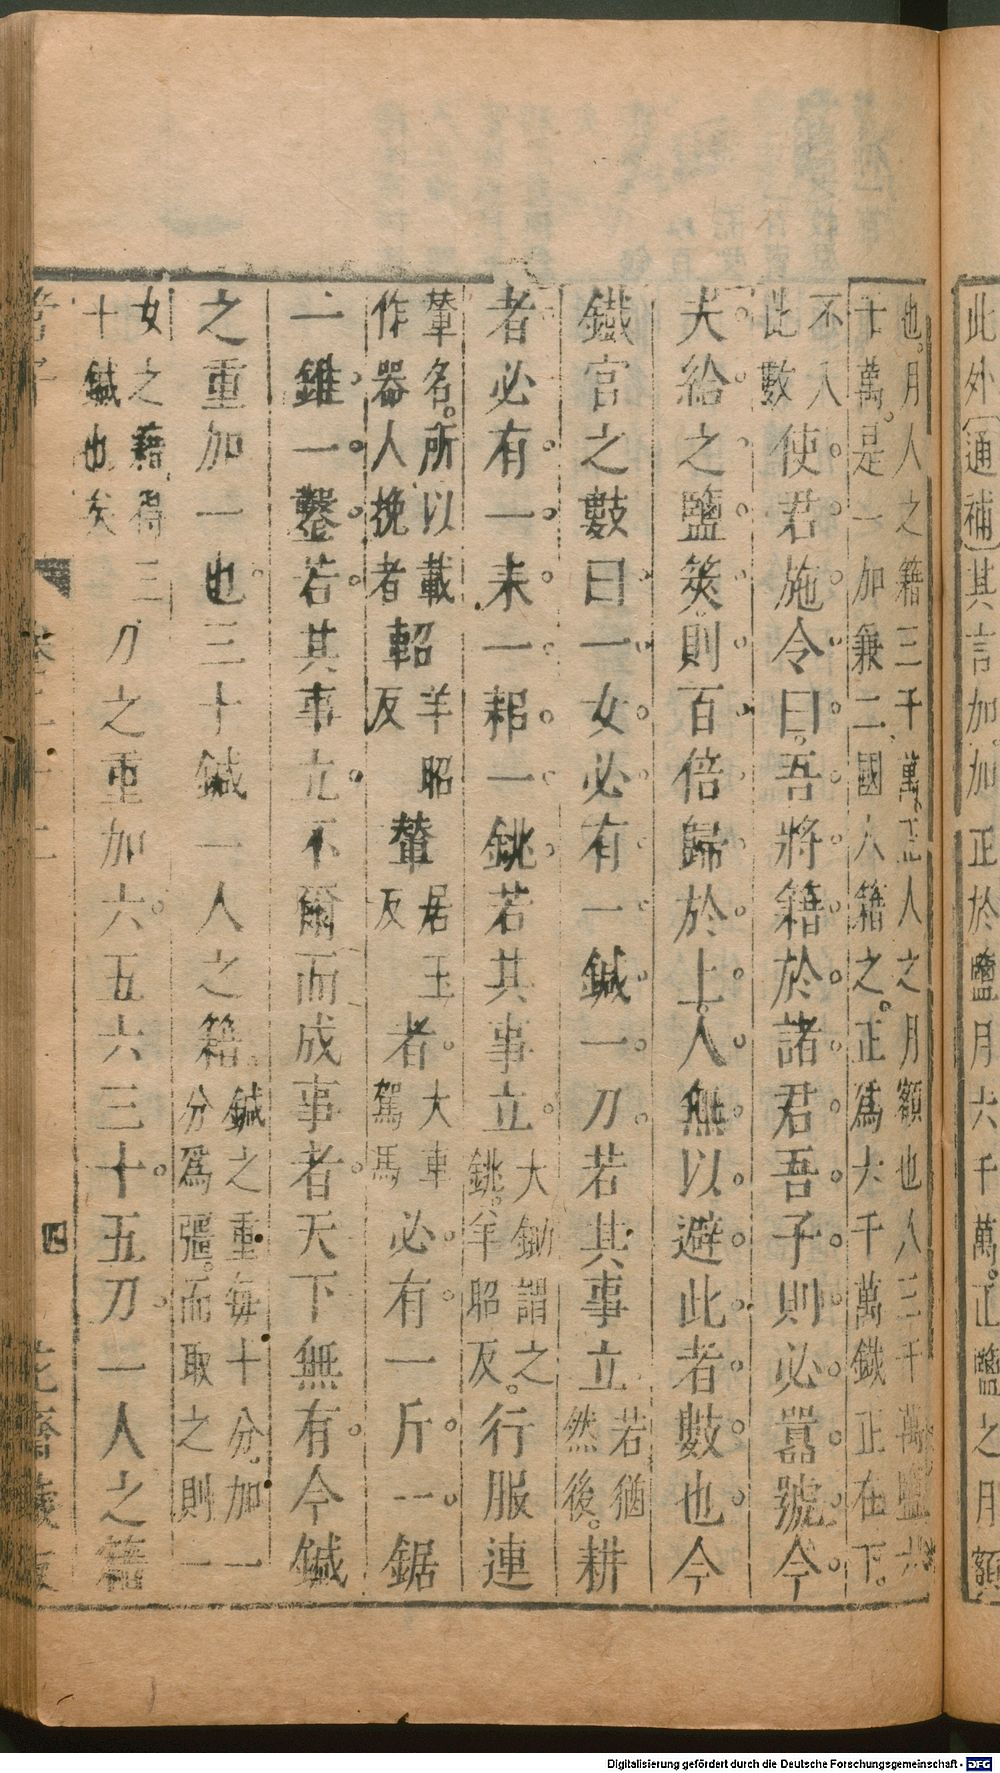 此外通補其言加加正於鹽月六千萬正鹽之月額
也月人之籍三千萬正人之月額也八三千萬鹽六
十萬是一加兼二國人籍之正爲六千萬鐵正在下
不入
此數
使君施令曰吾將籍於諸君吾子則必囂號今
夫給之鹽筴則百倍歸於上人無以避此者數也今
鐵官之數曰一女必有一鍼一刀若其事立
若猶
然後
耕
者必有一耒一耜一銚若其事立
大鋤謂之
銚羊昭反
行服連
輂名所以載
作器人挽者
軺
羊昭
反
輂
居玉
反
者
大車
駕馬
必有一斤一鋸
一錐一鑿若其事立不爾而成事者天下無有今鍼
之重加一也三十鍼一人之籍
鍼之重每十分加一
分爲彊而取之則一
女之籍得三
十鍼也矣
刀之重加六五六三十五刀一人之籍
四
花齋藏板
Digitalisierung gefördert durch die Deutsche Forschungsgemeinschaft - DFG